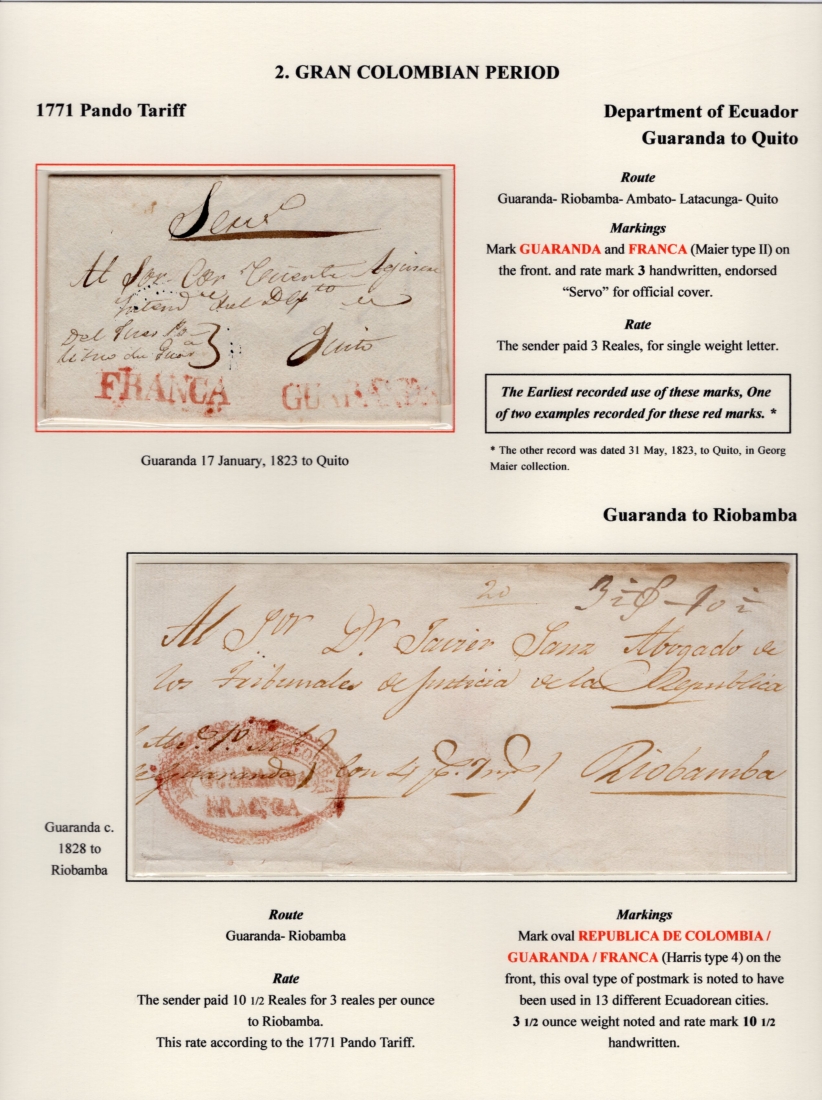 2. GRAN COLOMBIAN PERIOD
1771 Pando Tariff
Department of Ecuador
Guaranda to Quito
Route
Guaranda- Riobamba- Ambato- Latacunga- Quito
Markings
Mark GUARANDA and FRANCA (Maier type II) on
the front. and rate mark 3 handwritten, endorsed
“Servo” for official cover.
Rate
The sender paid 3 Reales, for single weight letter.
The Earliest recorded use of these marks, One
of two examples recorded for these red marks. *
* The other record was dated 31 May, 1823, to Quito, in Georg
Maier collection.
Al Sor
3
Quito
FRANCA GUARANDA
Guaranda 17 January, 1823 to Quito
Guaranda to Riobamba
20
Al Sor Dr Javier Sanz Abogado de
los Tribunales de Justicia de la Republica
GUARANDA
FRANCA
Riobamba
Guaranda c.
1828 to
Riobamba
Route
Guaranda- Riobamba
Rate
The sender paid 10 1/2 Reales for 3 reales per ounce
to Riobamba.
This rate according to the 1771 Pando Tariff.
Markings
Mark oval REPUBLICA DE COLOMBIA /
GUARANDA / FRANCA (Harris type 4) on the
front, this oval type of postmark is noted to have
been used in 13 different Ecuadorean cities.
3 1/2 ounce weight noted and rate mark 10 1/2
handwritten.